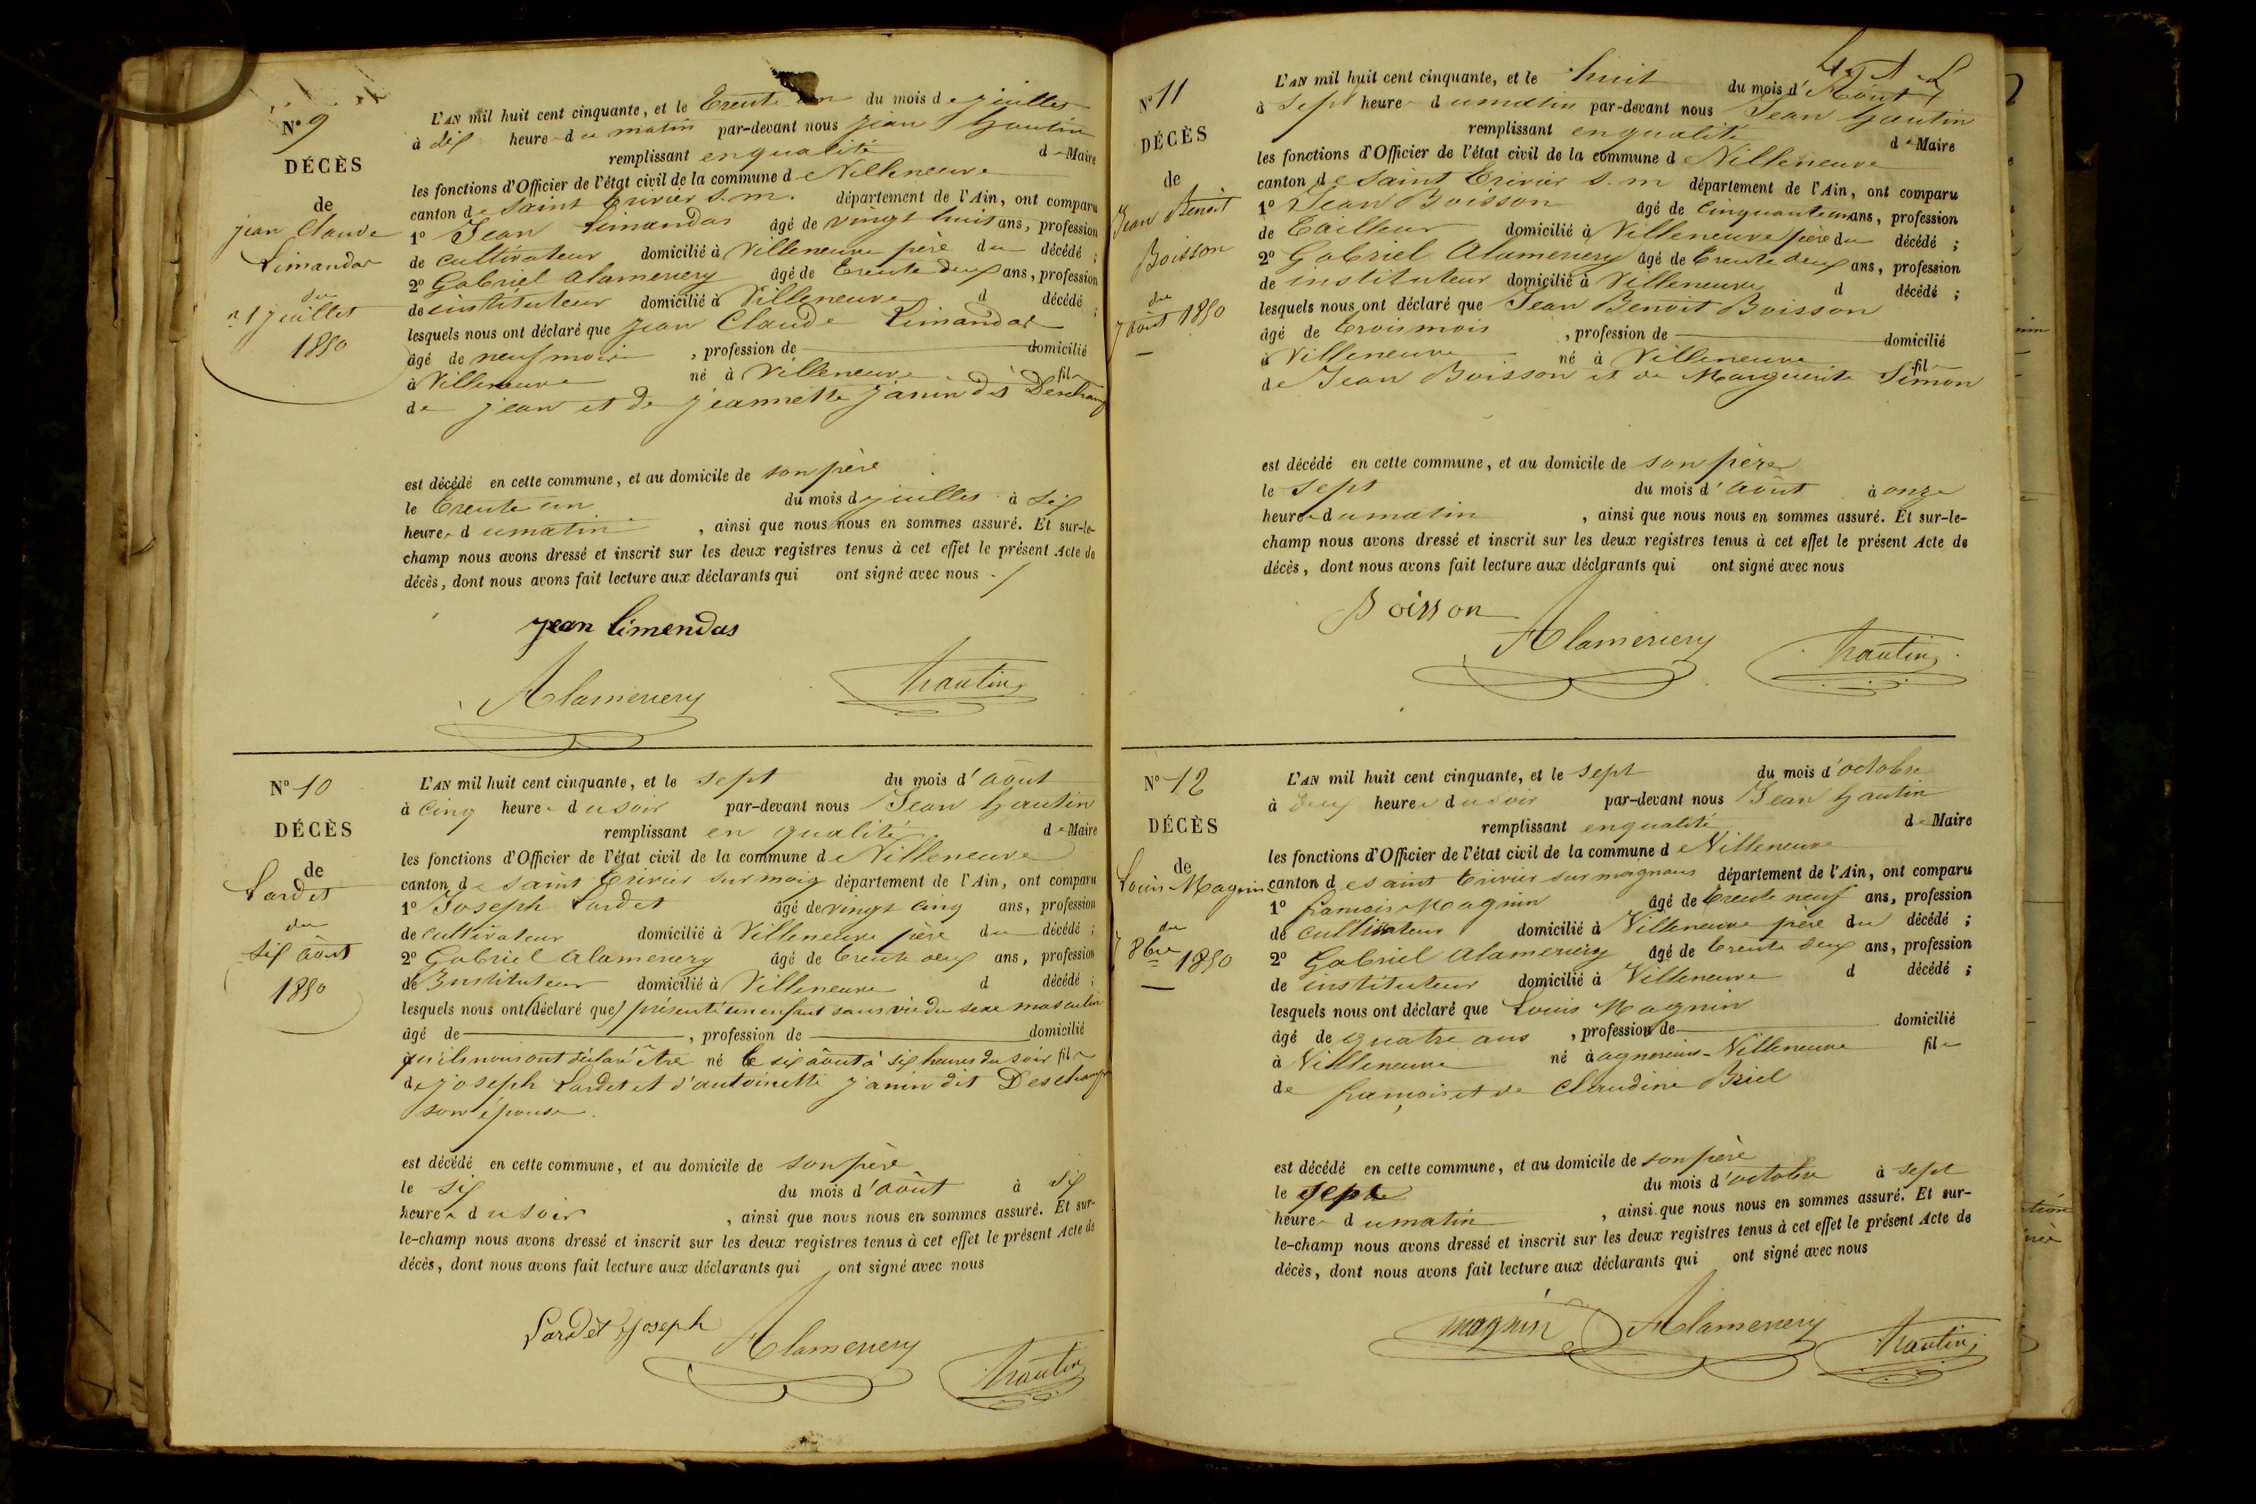 N° 9
DÉCÈS
de
jean Claude
Limandas
du
31 juillet
1850
L'AN mil huit cent cinquante, et le trente un du mois de juillet
à dix heures du matin par-devant nous jean hautin
remplissant en qualité de Maire
les fonctions d'Officier de l'état civil de la commune de Villeneuve
canton de saint trivier s. m. département de l'Ain, ont comparu
1° Jean Limandas âgé de vingt huit ans, profession
de cultivateur domicilié à Villeneuve père du décédé ;
2° Gabriel Alamercery âgé de trente deux ans, profession
de instituteur domicilié à Villeneuve d décédé ;
lesquels nous ont déclaré que jean Claude Limandas
âgé de neuf mois , profession de domicilié
à Villeneuve né à Villeneuve fils
de jean et de jeannette janin dit Deschamp
est décédé en cette commune, et au domicile de son père
le trente un du mois d juillet à six
heures d u matin , ainsi que nous nous en sommes assuré. Et sur-le-
champ nous avons dressé et inscrit sur les deux registres tenus à cet effet le présent Acte de
décès, dont nous avons fait lecture aux déclarants qui ont signé avec nous ./
jean limendas
Alamercery hautin
N° 10
DÉCÈS
de
Lardet
du
six août
1850
L'AN mil huit cent cinquante, et le sept du mois d'août
à cinq heures du soir par-devant nous Jean hautin
remplissant en qualité de Maire
les fonctions d'Officier de l'état civil de la commune de Villeneuve
canton de saint trivier sur moig département de l'Ain, ont comparu
1° Joseph Lardet âgé de vingt cinq ans, profession
de cultivateur domicilié à Villeneuve père du décédé ;
2° Gabriel Alamercery âgé de trente deux ans, profession
de instituteur domicilié à Villeneuve d décédé ;
lesquels nous ont (déclaré que) présenté un enfant sans vie du sexe masculin
âgé de , profession de domicilié
qu'ils nous ont déclaré être né le six août à six heures du soir fils
de joseph Lardet et d'antoinette janin dit Deschamp
son épouse.
est décédé en cette commune, et au domicile de son père
le six du mois d'août à six
heures du soir , ainsi que nous nous en sommes assuré. Et sur-
le-champ nous avons dressé et inscrit sur les deux registres tenus à cet effet le présent Acte de
décès, dont nous avons fait lecture aux déclarants qui ont signé avec nous
Lardet joseph Alamercery hautin
N° 11
DÉCÈS
de
Jean Benoit
Boisson
du
7 août 1850
L'AN mil huit cent cinquante, et le huit du mois d'Août
à sept heures du matin par-devant nous Jean hautin
remplissant en qualité de Maire
les fonctions d'Officier de l'état civil de la commune de Villeneuve
canton de saint trivier s. m département de l'Ain, ont comparu
1° Jean Boisson âgé de cinquante un ans, profession
de tailleur domicilié à Villeneuve père du décédé ;
2° Gabriel Alamercery âgé de trente deux ans, profession
de instituteur domicilié à Villeneuve d décédé ;
lesquels nous ont déclaré que Jean Benoit Boisson
âgé de trois mois , profession de domicilié
à Villeneuve né à Villeneuve fils
de Jean Boisson et de Marguerite Simon
est décédé en cette commune, et au domicile de son père
le sept du mois d'août à onze
heures du matin , ainsi que nous nous en sommes assuré. Et sur-le-
champ nous avons dressé et inscrit sur les deux registres tenus à cet effet le présent Acte de
décès, dont nous avons fait lecture aux déclarants qui ont signé avec nous
Boisson
Alamercery hautin
N° 12
DÉCÈS
de
Louis Magnin
du
7 8bre 1850
L'AN mil huit cent cinquante, et le sept du mois d'octobre
à deux heures du soir par-devant nous Jean hautin
remplissant en qualité de Maire
les fonctions d'Officier de l'état civil de la commune de Villeneuve
canton de saint trivier sur moignans département de l'Ain, ont comparu
1° françois Magnin âgé de trente neuf ans, profession
de cultivateur domicilié à Villeneuve père du décédé ;
2° Gabriel Alamercery âgé de trente deux ans, profession
de instituteur domicilié à Villeneuve d décédé ;
lesquels nous ont déclaré que Louis Magnin
âgé de quatre ans , profession de domicilié
à Villeneuve né à agnereins-Villeneuve fils
de françois et de Claudine Briel
est décédé en cette commune, et au domicile de son père
le sept du mois d'octobre à sept
heures du matin , ainsi que nous nous en sommes assuré. Et sur-
le-champ nous avons dressé et inscrit sur les deux registres tenus à cet effet le présent Acte de
décès, dont nous avons fait lecture aux déclarants qui ont signé avec nous
magnin Alamercery hautin